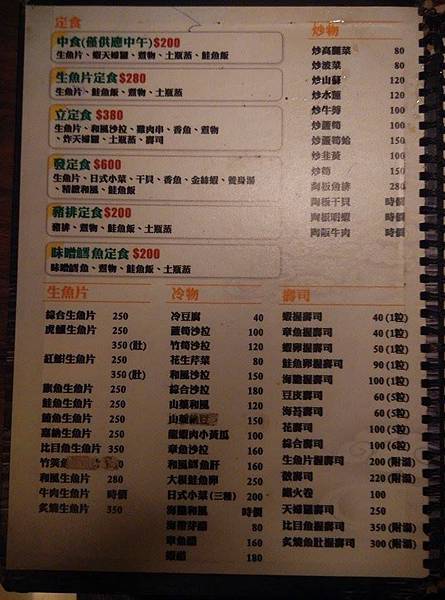 定食
中食(僅供應中午)$200
生魚片、蝦天婦羅、煮物、土瓶蒸、鮭魚飯
生魚片定食$280
生魚片、鮭魚飯、煮物、土瓶蒸
立定食 $380
生魚片、和風沙拉、雞肉串、香魚、煮物
、炸天婦羅、土瓶蒸、壽司
發定食$600
生魚片、日式小菜、干貝、香魚、金絲蝦、養身湯
、精緻和風、鮭魚飯
豬排定食$200
豬排、煮物、鮭魚飯、土瓶蒸
味噌鱈魚定食 $200
味噌鱈魚、煮物、鮭魚飯、土瓶蒸
炒物
炒高麗菜 80
炒波菜 80
炒山蘇 120
炒水蓮 120
炒牛蒡 100
炒蘆筍 100
炒蘆筍蛤 150
炒韭黃 100
炒筍 150
陶板魚排 280
陶板干貝 時價
陶板明蝦 時價
陶板牛肉 時價
生魚片
綜合生魚片 250
虎鰻生魚片 250
350(肚)
紅魽生魚片 250
350(肚)
旗魚生魚片 250
鮭魚生魚片 250
鮪魚生魚片 250
嘉鱲生魚片 250
比目魚生魚片 350
竹筴魚
和風生魚片 280
牛肉生魚片 時價
炙燒生魚片 350
冷物
冷豆腐 40
蘆筍沙拉 100
竹筍沙拉 120
花生芹菜 80
和風沙拉 150
綜合沙拉 180
山藥和風 120
山藥 150
龍蝦肉小黃瓜 100
章魚沙拉 160
和風鱈魚肝 160
大根鮭魚卵 250
日式小菜(三種) 200
海膽和風 時價
海帶芽醋 80
章魚醋 160
蝦醋 180
壽司
蝦握壽司 40 (1粒)
章魚握壽司 40 (1粒)
蝦卵握壽司 50 (1粒)
鮭魚卵握壽司 90 (1粒)
海膽握壽司 100 (1粒)
豆皮壽司 60 (5粒)
海苔壽司 60 (5粒)
花壽司 100 (5粒)
綜合壽司 100 (6粒)
生魚片握壽司 200 (附湯)
散壽司 220 (附湯)
鐵火卷 100
天婦羅壽司 250
比目魚握壽司 350 (附湯)
炙燒魚肚握壽司 300 (附湯)